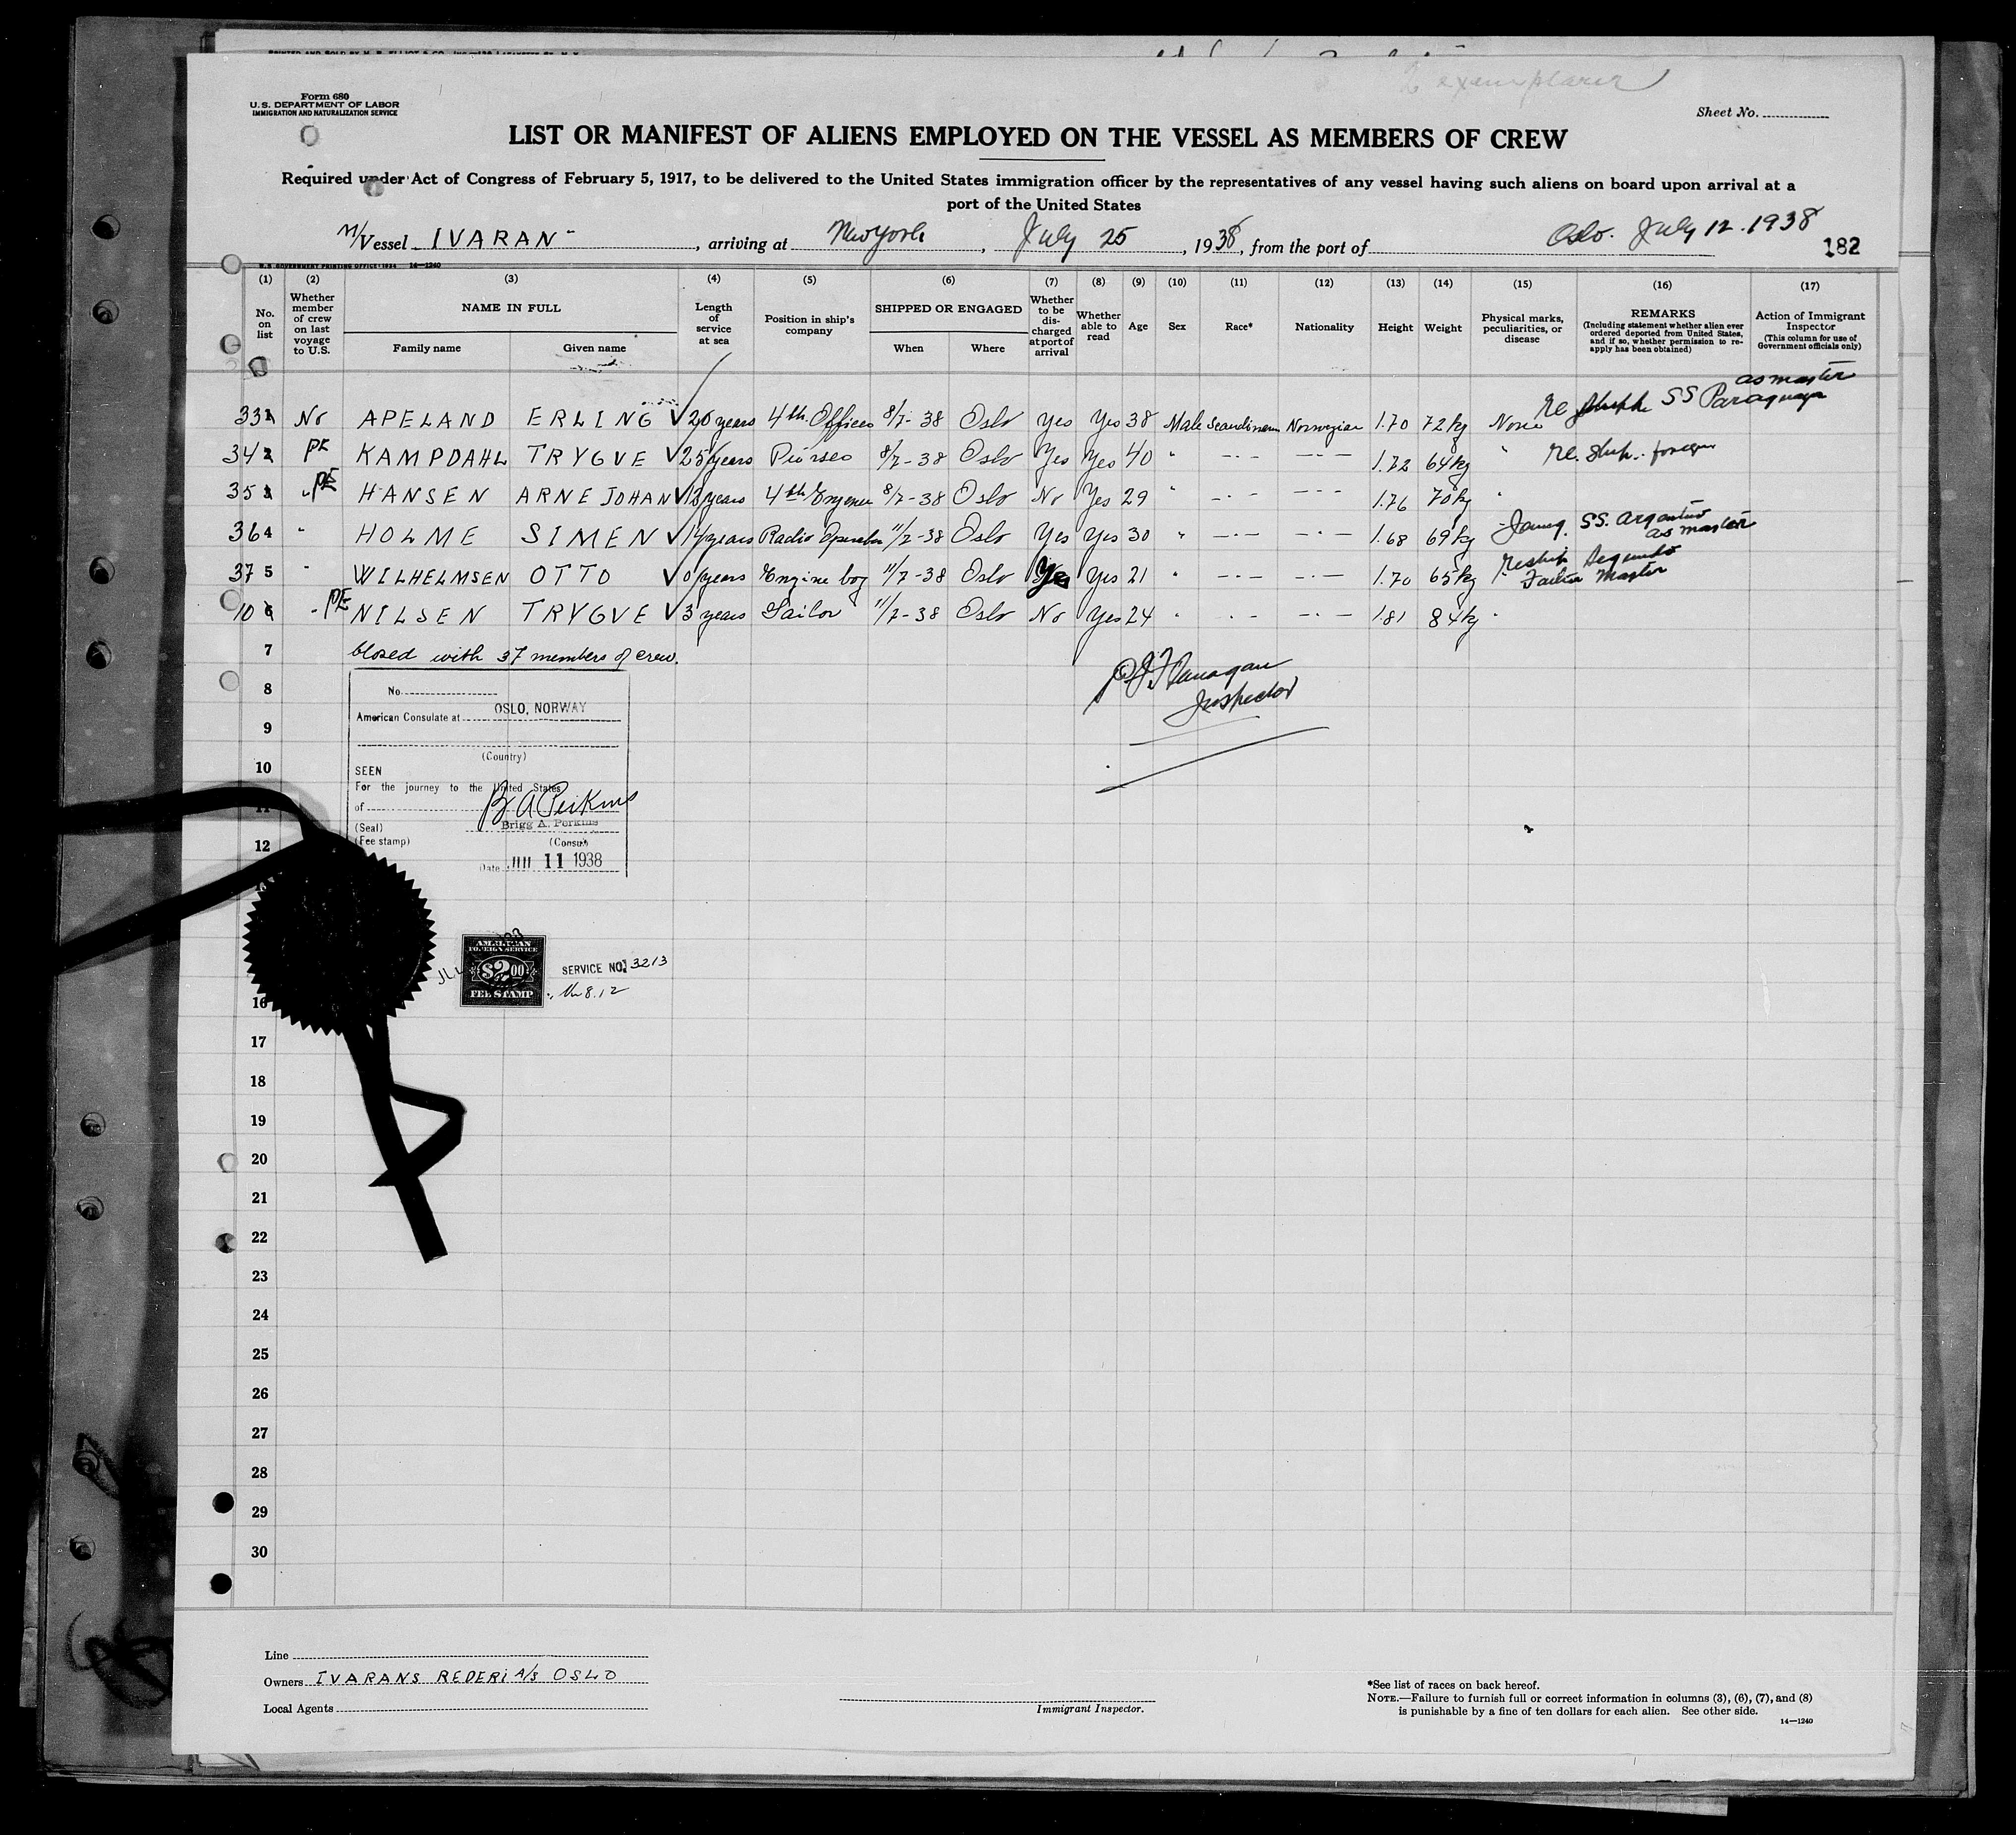 2 exemplarer
Form 680
U.S. DEPARTMENT OF LABOR
IMMIGRATION AND NATURALIZATION SERVICE
Sheet No.
LIST OR MANIFEST OF ALIENS EMPLOYED ON THE VESSEL AS MEMBERS OF CREW
Required under Act of Congress of February 5, 1917, to be delivered to the United States immigration officer by the representatives of any vessel having such aliens on board upon arrival at a
port of the United States
M/Vessel IVARAN, arriving at New York, July 25, 1938, from the port of Oslo. July 12. 1938
182
U.S. GOVERNMENT PRINTING OFFICE: 1934 14—1240
(1) (2) (3) (4) (5) (6) (7) (8) (9) (10) (11) (12) (13) (14) (15) (16) (17)
No. on list
Whether member of crew on last voyage to U.S.
NAME IN FULL
Family name Given name
Length of service at sea
Position in ship's company
SHIPPED OR ENGAGED
When Where
Whether to be discharged at port of arrival
Whether able to read
Age
Sex
Race*
Nationality
Height
Weight
Physical marks, peculiarities, or disease
REMARKS
(Including statement whether alien ever ordered deported from United States, and if so, whether permission to reapply has been obtained)
Action of Immigrant Inspector
(This column for use of Government officials only)
as master
33 1 No APELAND ERLING √ 20 years 4th. Officer 8/7-38 Oslo Yes Yes 38 Male Scandinavn Norwegian 1.70 72 kg None re SS Paraguaya
34 2 PE KAMPDAHL TRYGVE √ 25 years 8/7-38 Oslo Yes Yes 40 " -.- -.- 1.72 64 kg " re. ship. foreign
35 3 " PE HANSEN ARNE JOHAN √ 13 years 4th Engineer 8/7-38 Oslo No Yes 29 " -.- -.- 1.76 70 kg "
36 4 " HOLME SIMEN √ 14 years Radio Operator 11/7-38 Oslo Yes Yes 30 " -.- -.- 1.68 69 kg SS. Argentino
as master
37 5 " WILHELMSEN OTTO √ 0 years Engine boy 11/7-38 Oslo Yes Yes 21 " -.- -.- 1.70 65 kg " reship Segundo
Master
10 6 " PE NILSEN TRYGVE √ 3 years Sailor 11/7-38 Oslo No Yes 24 " -.- -.- 1.81 84 kg "
7 Closed with 37 members of crew.
P J Flanagan
Inspector
8
No.
American Consulate at OSLO, NORWAY
9
(Country)
10
SEEN
For the journey to the United States
11
of B A Perkins
(Seal) Brigg A. Perkins
(Fee stamp) (Consul)
12
Date JUL 11 1938
AMERICAN
FOREIGN SERVICE
$2.00
FEE STAMP
SERVICE NO. 3213
16
17
18
19
20
21
22
23
24
25
26
27
28
29
30
Line
Owners IVARANS REDERI A/S OSLO
Local Agents
Immigrant Inspector.
*See list of races on back hereof.
NOTE.—Failure to furnish full or correct information in columns (3), (6), (7), and (8)
is punishable by a fine of ten dollars for each alien. See other side.
14—1240